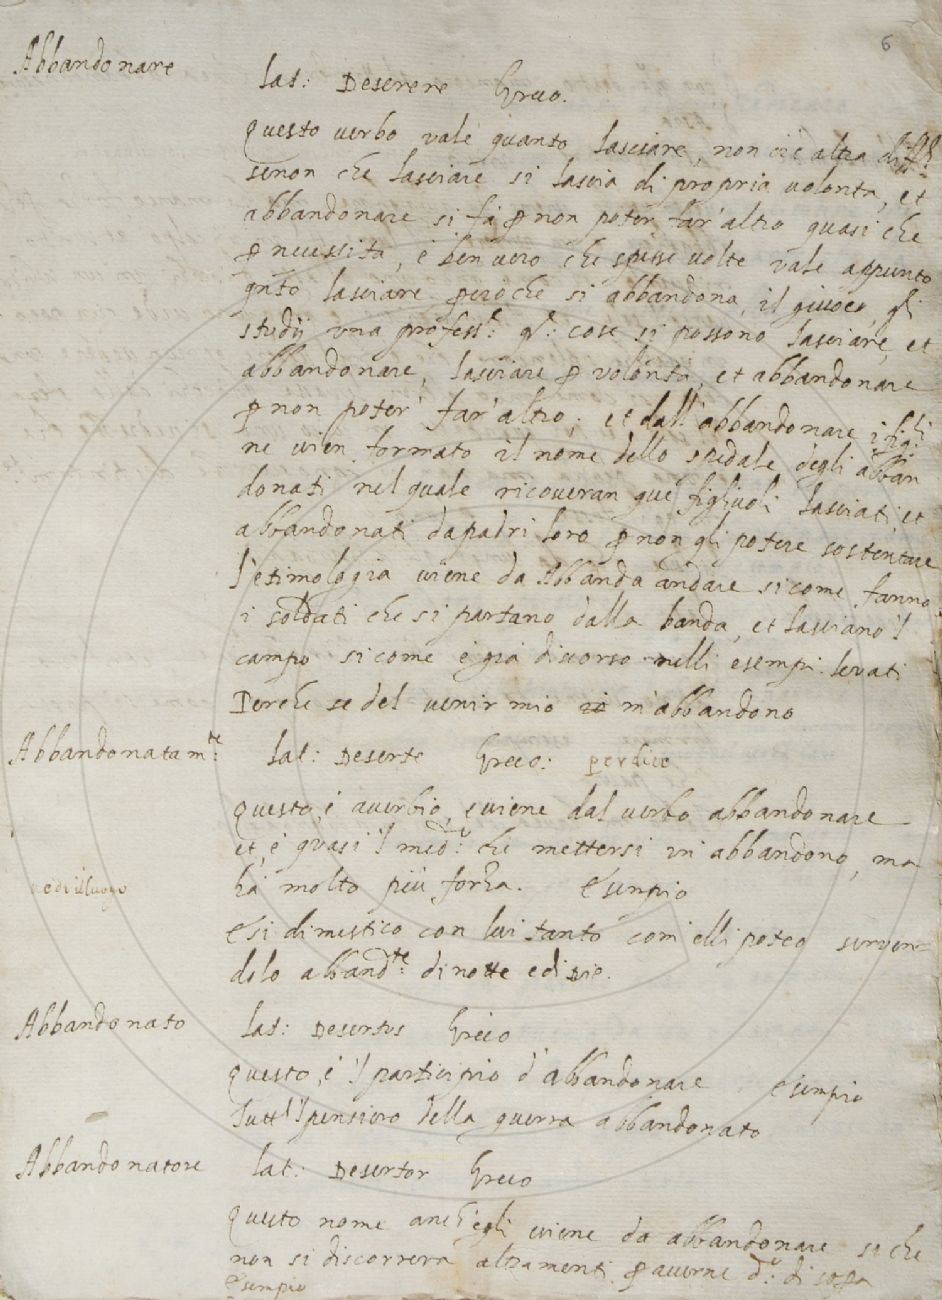 6
Abbandonare
lat: Deserere Greco.
Questo verbo vale quanto lasciare, non ci è altra
senon che lasciare si lascia di propria volontà, et
abbandonare si fà ꝑ non poter far' altro quasi che
ꝑ necessità, è ben vero che spesse volte vale appunto
qnto lasciare ꝑciò che si abbandona il giuoco, gli
studij una profess.e ql: cose si possono lasciare, et
abbandonare, lasciare ꝑ volontà, et abbandonare
ꝑ non poter' far' altro; et dall' abbandonare i figli
ne vien formato il nome dello spedale degli abban
donati nel quale ricoveran que' figlivoli lasciati, et
abbandonati da padri loro ꝑ non gli potere sostentare
l'etimologia viene da Abbanda andare sicome fanno
i soldati che si partano dalla banda, et lasciano 'l
campo sicome è già discorso nelli esempi levati
Perche se del venir mio m'abbandono
Abbandonatam.te
lat: Deserte Greco:
Questo, è averbio, e viene dal verbo abbandonare
et, è quasi 'l med.o che mettersi in abbandono, ma
vedi il luogo
hà molto più forza. Esempio
E si dimestico con lui tanto com' elli poteo serven=
dolo abband.te di notte e di die.
Abbandonato
lat: Desertus Greco
Questo, è 'l participio d'abbandonare Esempio
Tutt' 'l pensiero della guerra abbandonato
Abbandonatore
lat: Desertor Greco
Questo nome anch'egli viene da abbandonare si che
non si discorrera altramenti ꝑ averne d.o di sopra
Esempio